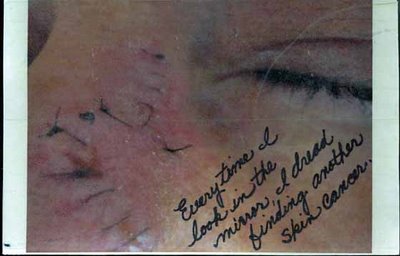 Everytime I
look in the
mirror, I dread
finding another
skin cancer.